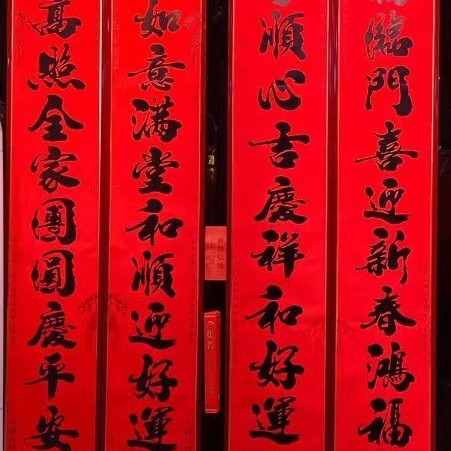 臨門喜迎新春鴻福
順心吉慶祥和好運
如意滿堂和順迎好運
高照全家團圓慶平安